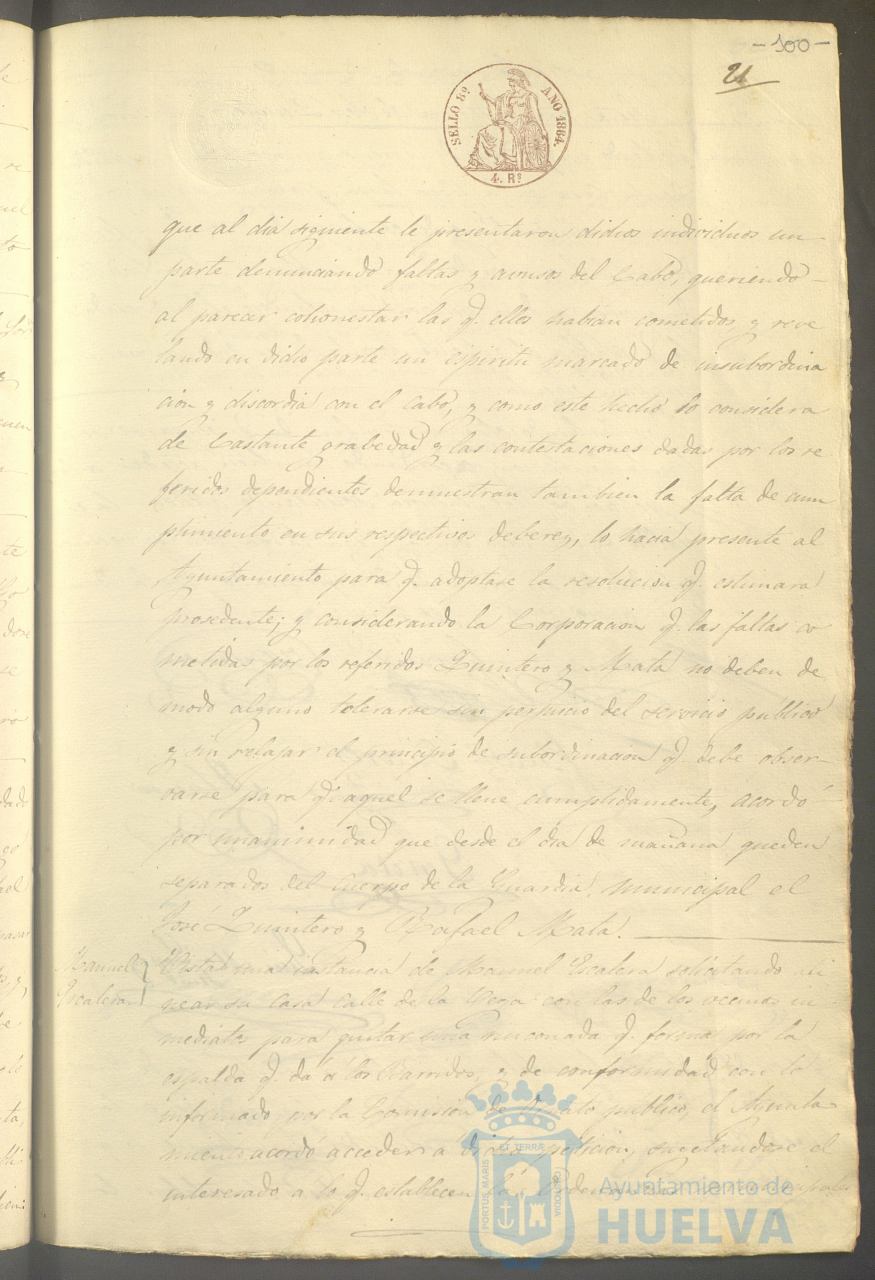 -100-
21
SELLO 8º AÑO 1864.
4. Rs
que al dia siguiente le presentaron dichos individuos un
parte denunciando faltas y avusos del Cabo, queriendo
al parecer cohonestar las q. ellos habian cometidos, y reve
lando en dicho parte un espiritu marcado de insubordina
cion y discordia con el Cabo, y como este hecho lo considera
de bastante grabedad y las contestaciones dadas por los re
feridos dependientes demuestran tambien la falta de cum
plimiento en sus respectivos deberes, lo hacia presente al
Ayuntamiento para q. adoptase la resolucion q. estimara
prosedente; y considerando la Corporacion q. las faltas co
metidas por los referidos Quintero y Mata no deben de
modo alguno tolerarse sin perjuicio del servicio publico
y sin relajar el principio de subordinacion q. debe obser-
varse para q. aquel se llene cumplidamente, acordó
por unanimidad que desde el dia de mañana queden
separados del Cuerpo de la Guardia municipal el
José Quintero y Rafael Mata.
Manuel
Escalera
Vista una instancia de Manuel Escalera solicitando ali
near su casa calle de la Vega con las de los vecinos in-
mediatos para quitar una rinconada q. forma por la
espalda q. dá a los Barridos, y de conformidad con lo
informado por la Comision de Ornato publico, el Ayunta
miento acordó acceder a dicha peticion, sugetandose el
interesado a lo q. establecen las Ordenanzas municipales
PORTUS MARIS ET TERRÆ CUSTODIA
Ayuntamiento de
HUELVA